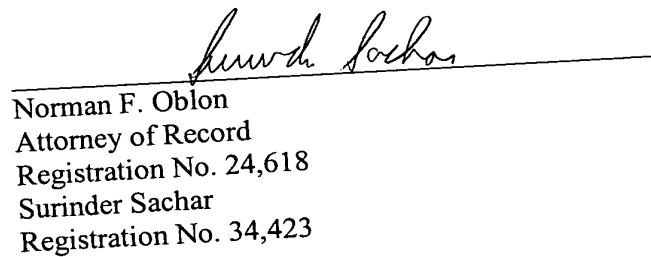 Surinder Sachar
Norman F. Oblon
Attorney of Record
Registration No. 24,618
Surinder Sachar
Registration No. 34,423